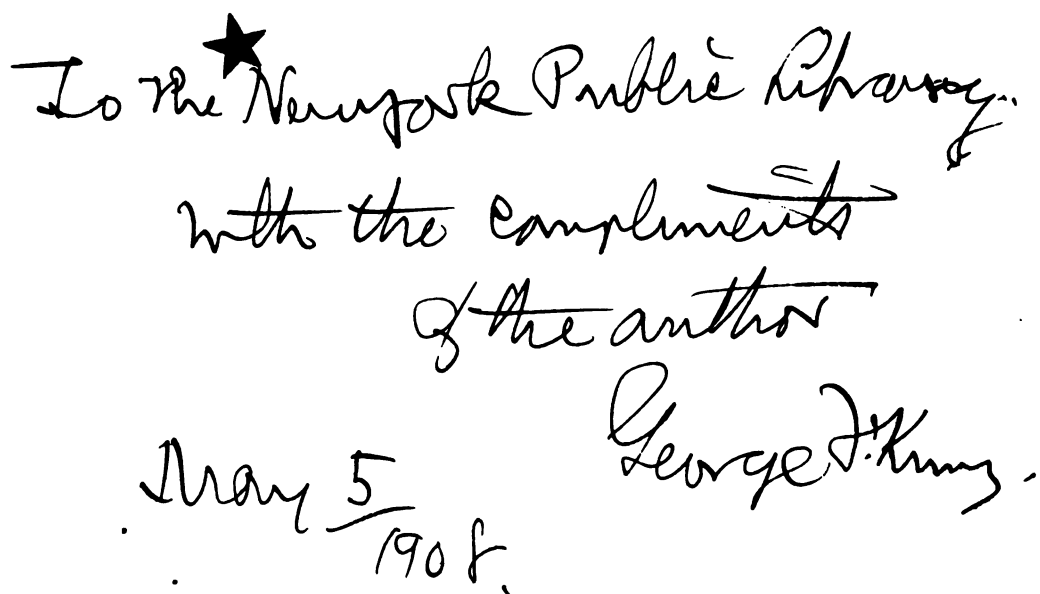 To the New York Public Library.
with the compliments
of the author
George F. Kunz.
May 5
1908.